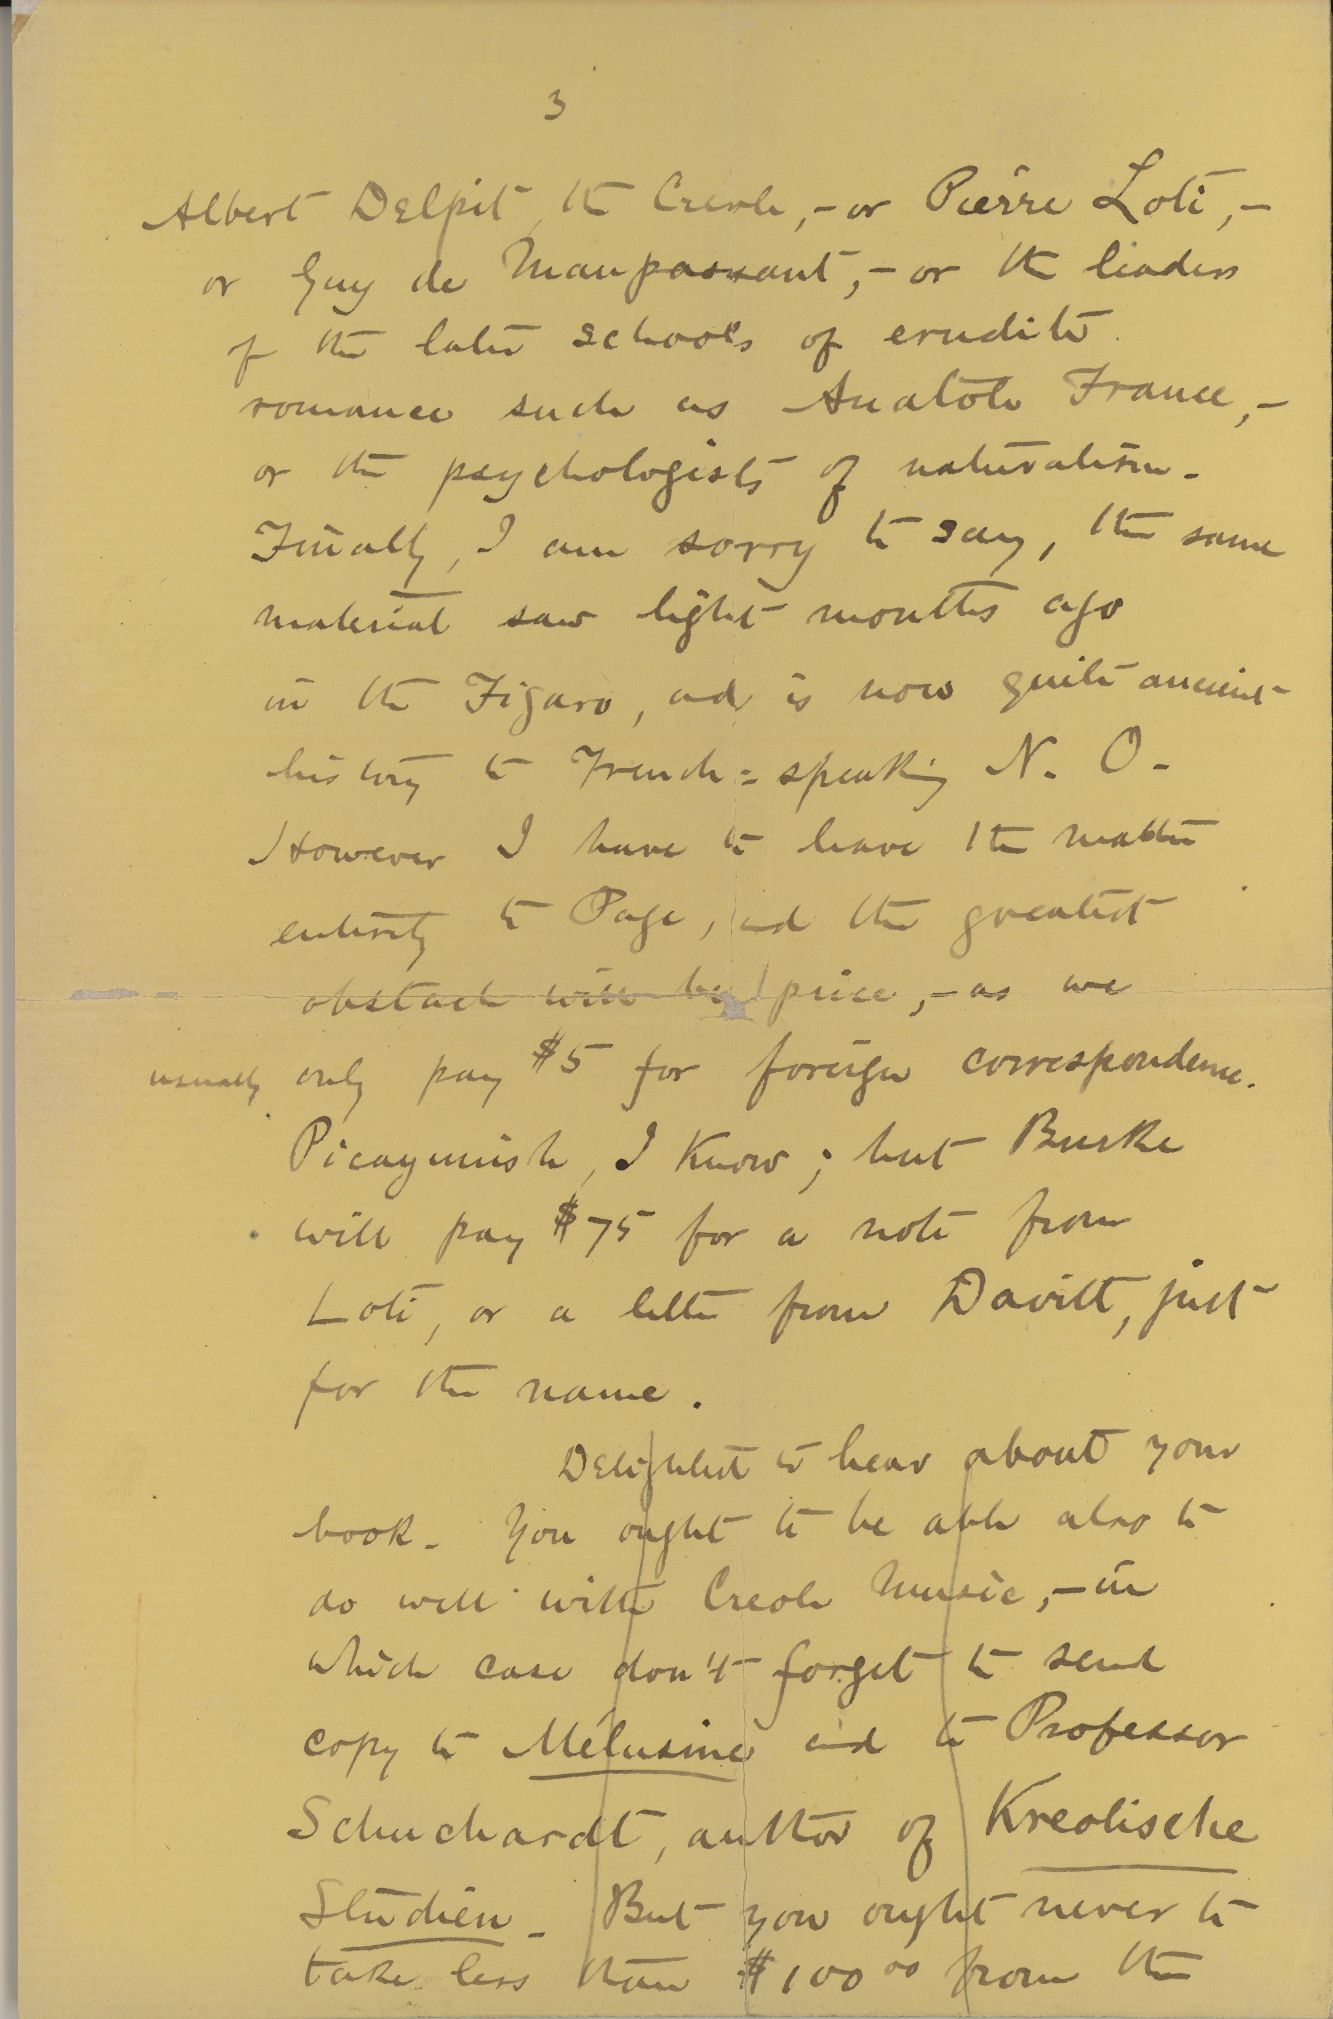 3
Albert Delpit, the Creole, - or Pierre Loti, -
or Guy de Maupassant, - or the leaders
of the later schools of erudite
romance such as Anatole France, -
or the psychologists of naturalism -
Finally, I am sorry to say, the same
material saw light months ago
in the Figaro, and is now quite ancient
history to French = speaking N. O. -
However I have to leave the matter
entirely to Page, and the greatest
obstacle will be price, - as we
usually only pay $5 for foreign correspondence.
Picayunish, I know; but Burke
will pay $75 for a note from
Loti, or a letter from Davitt, just
for the name.
Delighted to hear about your
book - You ought to be able also to
do well with Creole Music, - in
which case don't forget to send
copy to Mélusine and to Professor
Schuchardt, author of Kreolische
Studien - But you ought never to
take less than $100 00 from the